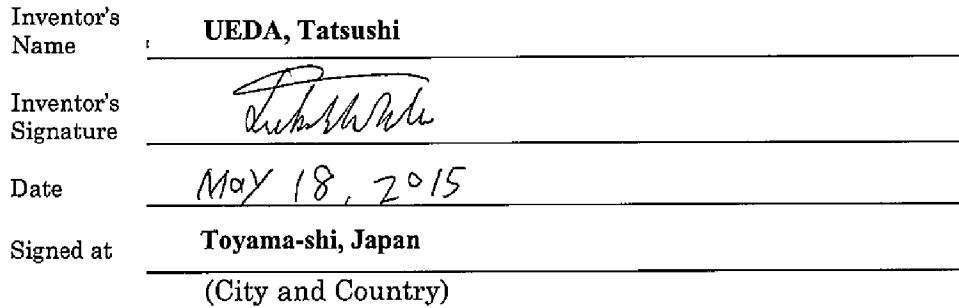 Inventor's
Name : UEDA, Tatsushi
Inventor's
Signature
Date May 18, 2015
Signed at Toyama-shi, Japan
(City and Country)